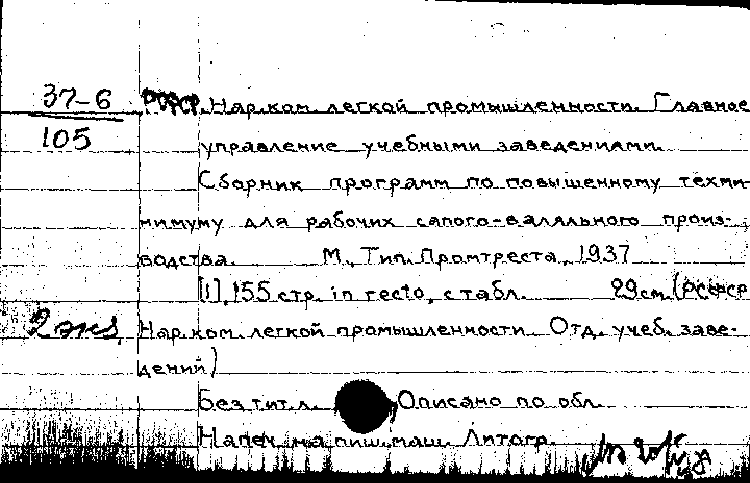 37-6
105
РСФСР. Нар.ком. легкой промышленности. Главное
управление учебными заведениями.
Сборник программ по повышенному техми-
нимуму для рабочих сапого-валяльного произ-
водства. М., Тип. Промтреста, 1937
[1], 155 стр. in recto, с табл. 29 см. (РСФСР
2 экз.
Нар.ком. легкой промышленности. Отд. учеб. заве-
дений)
Без тит. л. Описано по обл.
Напеч. на пиш. маш. Литогр.